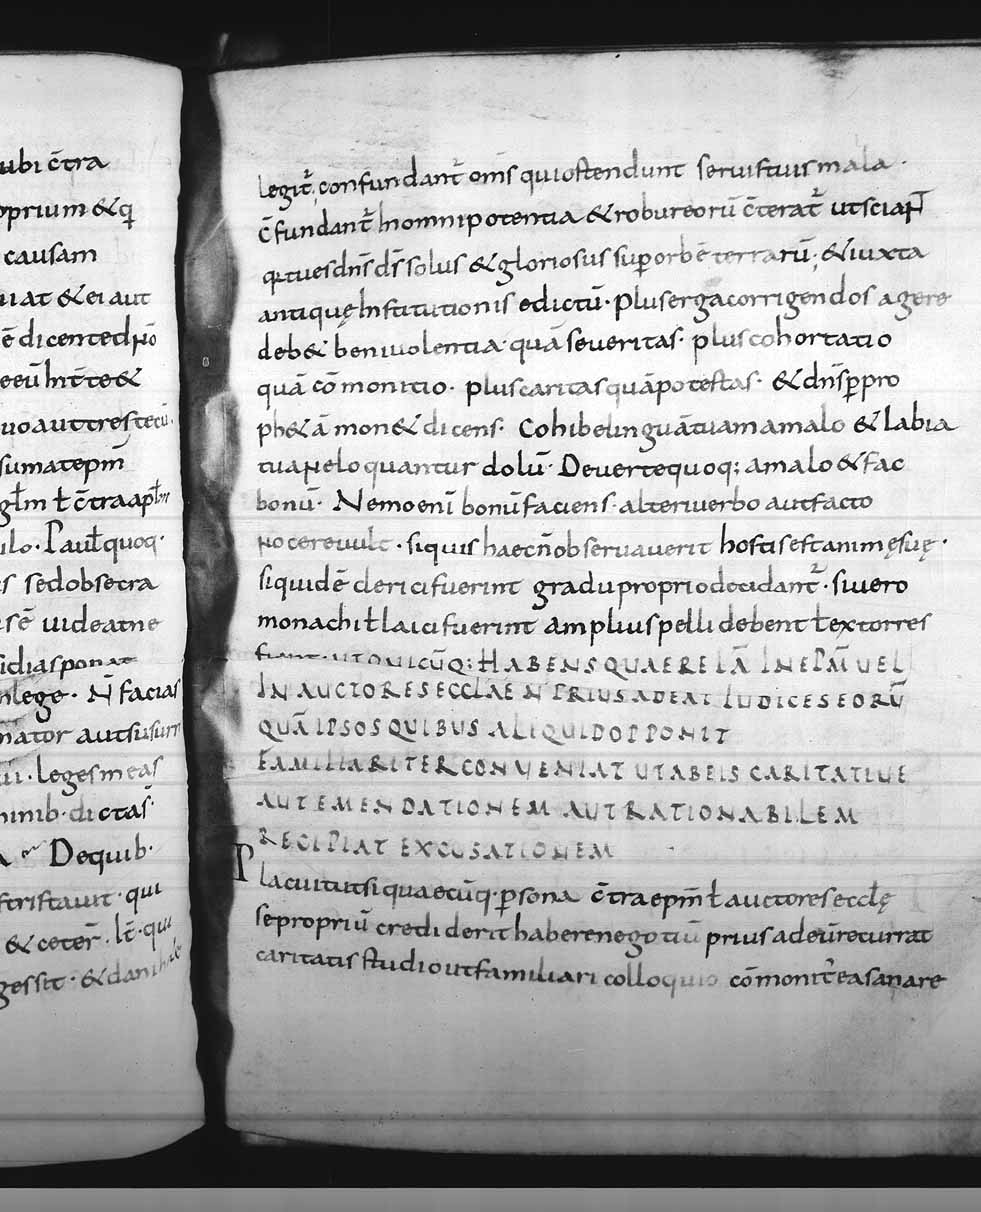 ubi c̄tra
oprium & q̄
causam
uiat & ei aut
ē dicente dn̄o
eeū Int̄te &
sumat ep̄m
gl̄m ł c̄tra apl̄m
ilo · Paul̄ quoq·
s sed obsecra
isē uideat ne
sidias ponat
nlege · N̄ facias
nator aut susurr
ui · leges meas
minib· dictas̄·
Dequib·
scrista uit · qui
& ceter̄ · lt̄· qui
gessit · & dan
legit̄; confundant̄ om̄s qui ostendunt seruis tuis mala ·
c̄fundant̄ In omni potentia & robur eorū c̄terat̄ ut sciaɴt
q̄ tu es dn̄s d̄s solus & gloriosus sup orbē terrarū; & iuxta
antiquę Institutionis edictū · plus erga corrigendos agere
deb& beniuolentia quā seueritas · plus cohortatio
quā cōmonitio · plus caritas quā potestas · & dn̄s p̄ pro
ph&ā mon& dicens · Cohibe linguā tuam a malo & labia
tua ɴe loquantur dolū · Deuerte quoq; a malo & fac
bonū · Nemo enī bonū faciens · alteri uerbo aut facto
ɴocere uult · si quis haec n̄ obseruauerit hostis est animę suę ·
siquidē clerici fuerint gradu proprio decidant̄ · si uero
monachi ł laici fuerint amplius pelli debent ł extorres
fiant · UT QUICŪQ; HABENS QUAERELĀ IN EP̄M UEL
IN AUCTORES ECCLAE N̄ PRIUS ADEAT IUDICES EORŪ
QUĀ IPSOS QUIBUS ALIQUID OPPONIT
FAMILIARITER CONVENIAT UT AB EIS CARITATIUE
AUT EMENDATIONEM AUT RATIONABILEM
RECIPIAT EXCUSATIONEM
Placuit ut si quaecūq· p̄sona c̄tra ep̄m ł auctores eccl̄ę
se propriū crediderit habere negotiū prius ad eū recurrat
caritatis studio ut familiari colloquio cōmonit̄ ea sanare